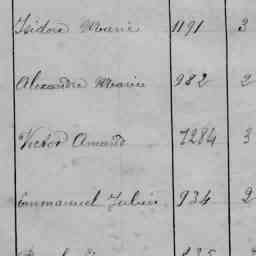 Isidore Mourie 1191 3
Alexandre Mearice 982 2
Victor Amand 7284 3
Emmanuel Julien 934 2